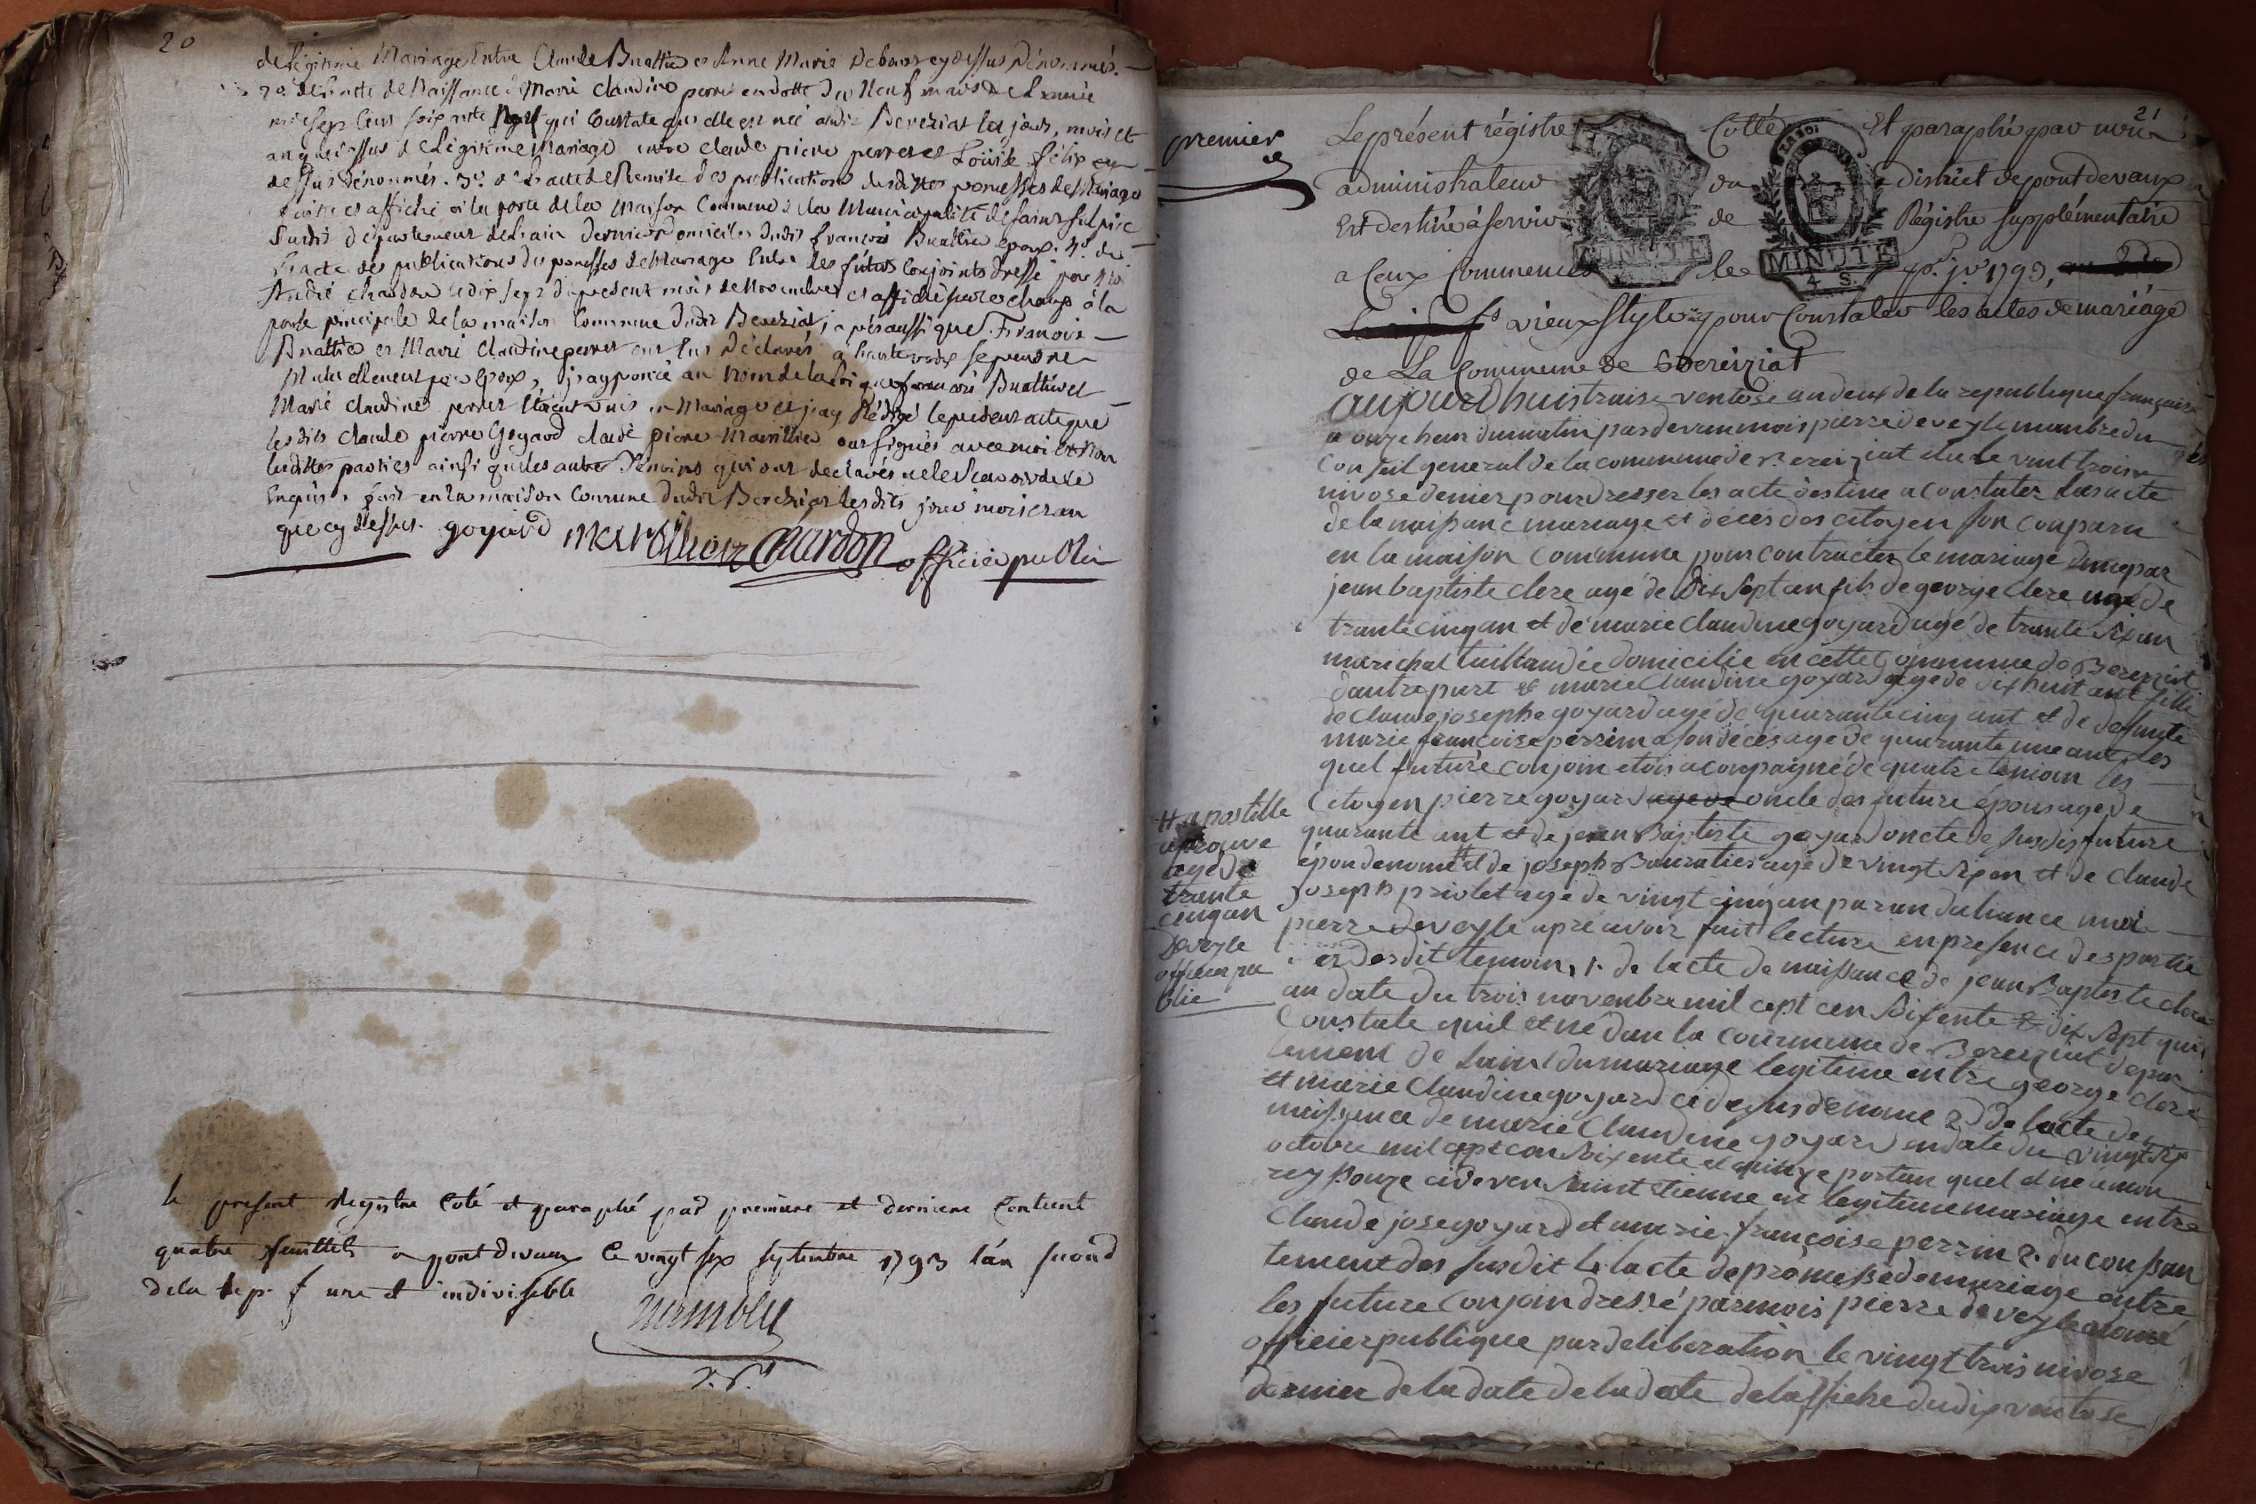 20
de légitime Mariage Entre Claude Buathier et Anne Marie Debourg cy dessus Dénommés.
2º de l'acte de Naissance de Marie Claudine perret en datte du Neuf mars de l'année
mil sept cent soixante Neuf qui Constate qu'elle est née audit Bereiziat les jour, mois et
an que dessus de légitime Mariage entre claude pierre perret et Louise félix cy
dessus dénommés. 3º de l'acte de Remise des publications desdittes promesses de Mariage
faite et affiché à la porte de la Maison Commune de la Municipalité de saint sulpice
susdit département de l'ain dernier domicile dudit francois Buathier époux. 4º de
l'acte des publications du promesses de Mariage Entre les futurs Conjoints dressé par Moi
André chardon le dix sept du présent mois de Novembre et affiché sur le champ à la
porte principale de la maison Commune dudit Bereiziat; après aussi que Francois
Buathier et Marie Claudine perret ont eus Déclarés à haute voix se prendre
Mutuellement pour époux, j'ay prononcé au Nom de la loi que francois Buathier et
Marie claudine perret étoient unis en Mariage et j'ay Rédigé le present acte que
lesdits claude pierre Goyard claude pierre Marillier ont signés avec moi et non
lesdittes parties ainsi que les autres Témoins qui ont declarés ne le sçavoir de ce
Enquis, fait en la maison Commune dudit Bereiziat lesdits jour mois et an
que cy dessus. goyard marillier chardon officier public
le present Registre Coté et paraphé par premiere et derniere Contient
quatre feuillets a pont devaux le vingt six septembre 1793 l'an second
de la rep. f une et indivisible
21
premier
Le présent régistre Cotté Et paraphé par nous
administrateur du district de pont devaux
Est destiné à servir de Régistre supplémentaire
MINUTE
MINUTE
4. S.
a Ceux Commencés le pr. jr. 1793,
vieux Style pour Constater les actes de mariage
de La Commune de Bereiziat
aujourdhuis traise ventose an deux de la republique française
a onze heur du matin pardevan mois pierre deveyle manbre du
Conseil general de la commune de Bereiziat elu le vint trois
nivose denier pour dresser les acte destine a Constater les acte
de la naissance mariage et décés des citoyen son conparu
en la maison Commune pour contracter le mariage dune par
jean baptiste clere agé de dix sept an fils de george clere agé de
trante cinq an et de marie claudine goyard agé de trante six an
marichal taillandie domicilie en cette Commune de Bereiziat
dautre part et marie Claudine goyard agé de dix huit ant fille
de Claude josephe goyard agé de quarante cinq ant et de defunte
marie françoise perrin a son décés agé de quarante une ant les
quel future conjoin etois aconpaigné de quatre temoin les
Citoyen pierre goyard oncle des future épous age de
quarante ant et de jean Baptiste goyard oncte de susdis future
épou denomé et de joseph Bauratier agé de vingt six an et de Claude
joseph priolet agé de vingt cinq an paran daliance moi
pierre deveyle apré avoir fait lecture en presence des partie
et desdit temoin, 1. de lacte de naissance de jean Baptiste clere
an date du trois novenbre mil cept cen soixente et dix sept qui
Constate quil et né dan la commune de Bereiziat depar
tement de lain du mariage legitime entre george clere
et marie Claudine goyard cidesus dénomé 2 de lacte de
naissance de marie Claudine goyard en date du vingt six
octobre mil cept cen soixente et quinze portan quel et né a mon
rey souze cideven saint etienne en legitime mariage entre
Claude jose goyard et marie françoise perrin 2. du consan
tement des susdit le lacte de promesse de mariage entre
les future Conjoin dressé par mois pierre deveyle nomé
officier publique par deliberation le vingt trois nivose
dernier de la date de la date de laffiche du dix ventose
# apostille
aprouve
agé de
trante
cinq an
Deveyle
officier pu
blic